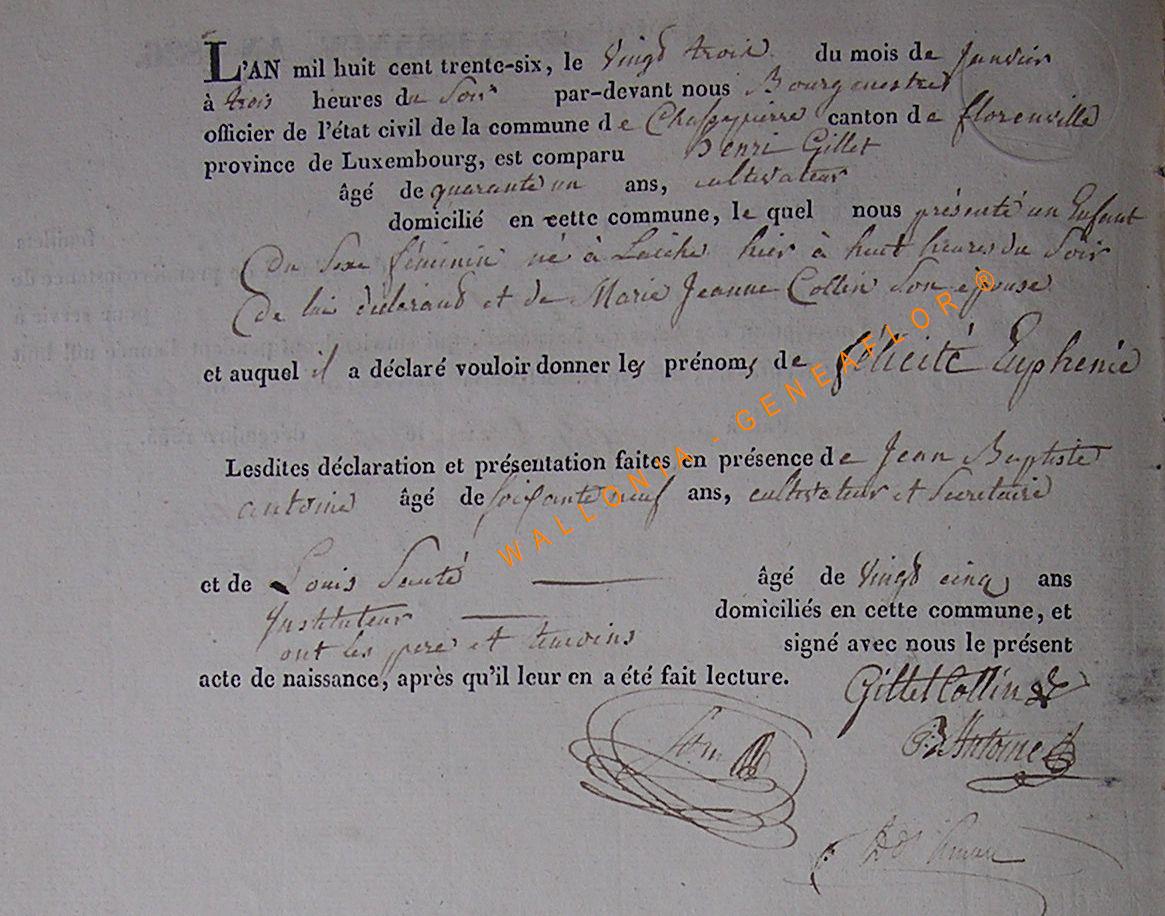 L'AN mil huit cent trente-six, le vingt trois du mois de Janvier
à trois heures du Soir par-devant nous Bourgmestre
officier de l'état civil de la commune de Chassepierre canton de florenville
province de Luxembourg, est comparu henri Gillet
âgé de quarante un ans, cultivateur
domicilié en cette commune, le quel nous présente un Enfant
Du Sexe féminin né à Laiche hier à huit heures du Soir
de lui déclarant et de Marie Jeanne Collin Son épouse
et auquel il a déclaré vouloir donner les prénoms de félicité Euphenie
Lesdites déclaration et présentation faites en présence de Jean Baptiste
antoine âgé de soixante neuf ans, cultivateur et Secretaire
et de Louis âgé de vingt cinq ans
Instituteur domiciliés en cette commune, et
ont les pere et temoins signé avec nous le présent
acte de naissance, après qu'il leur en a été fait lecture.
Gillet Collin
Antoine
WALLONIA - GENEAFLOR ®